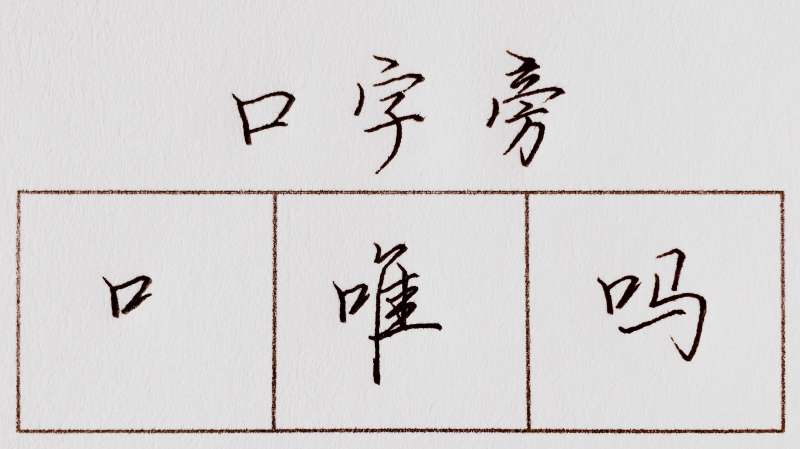 口字旁
口 唯 吗